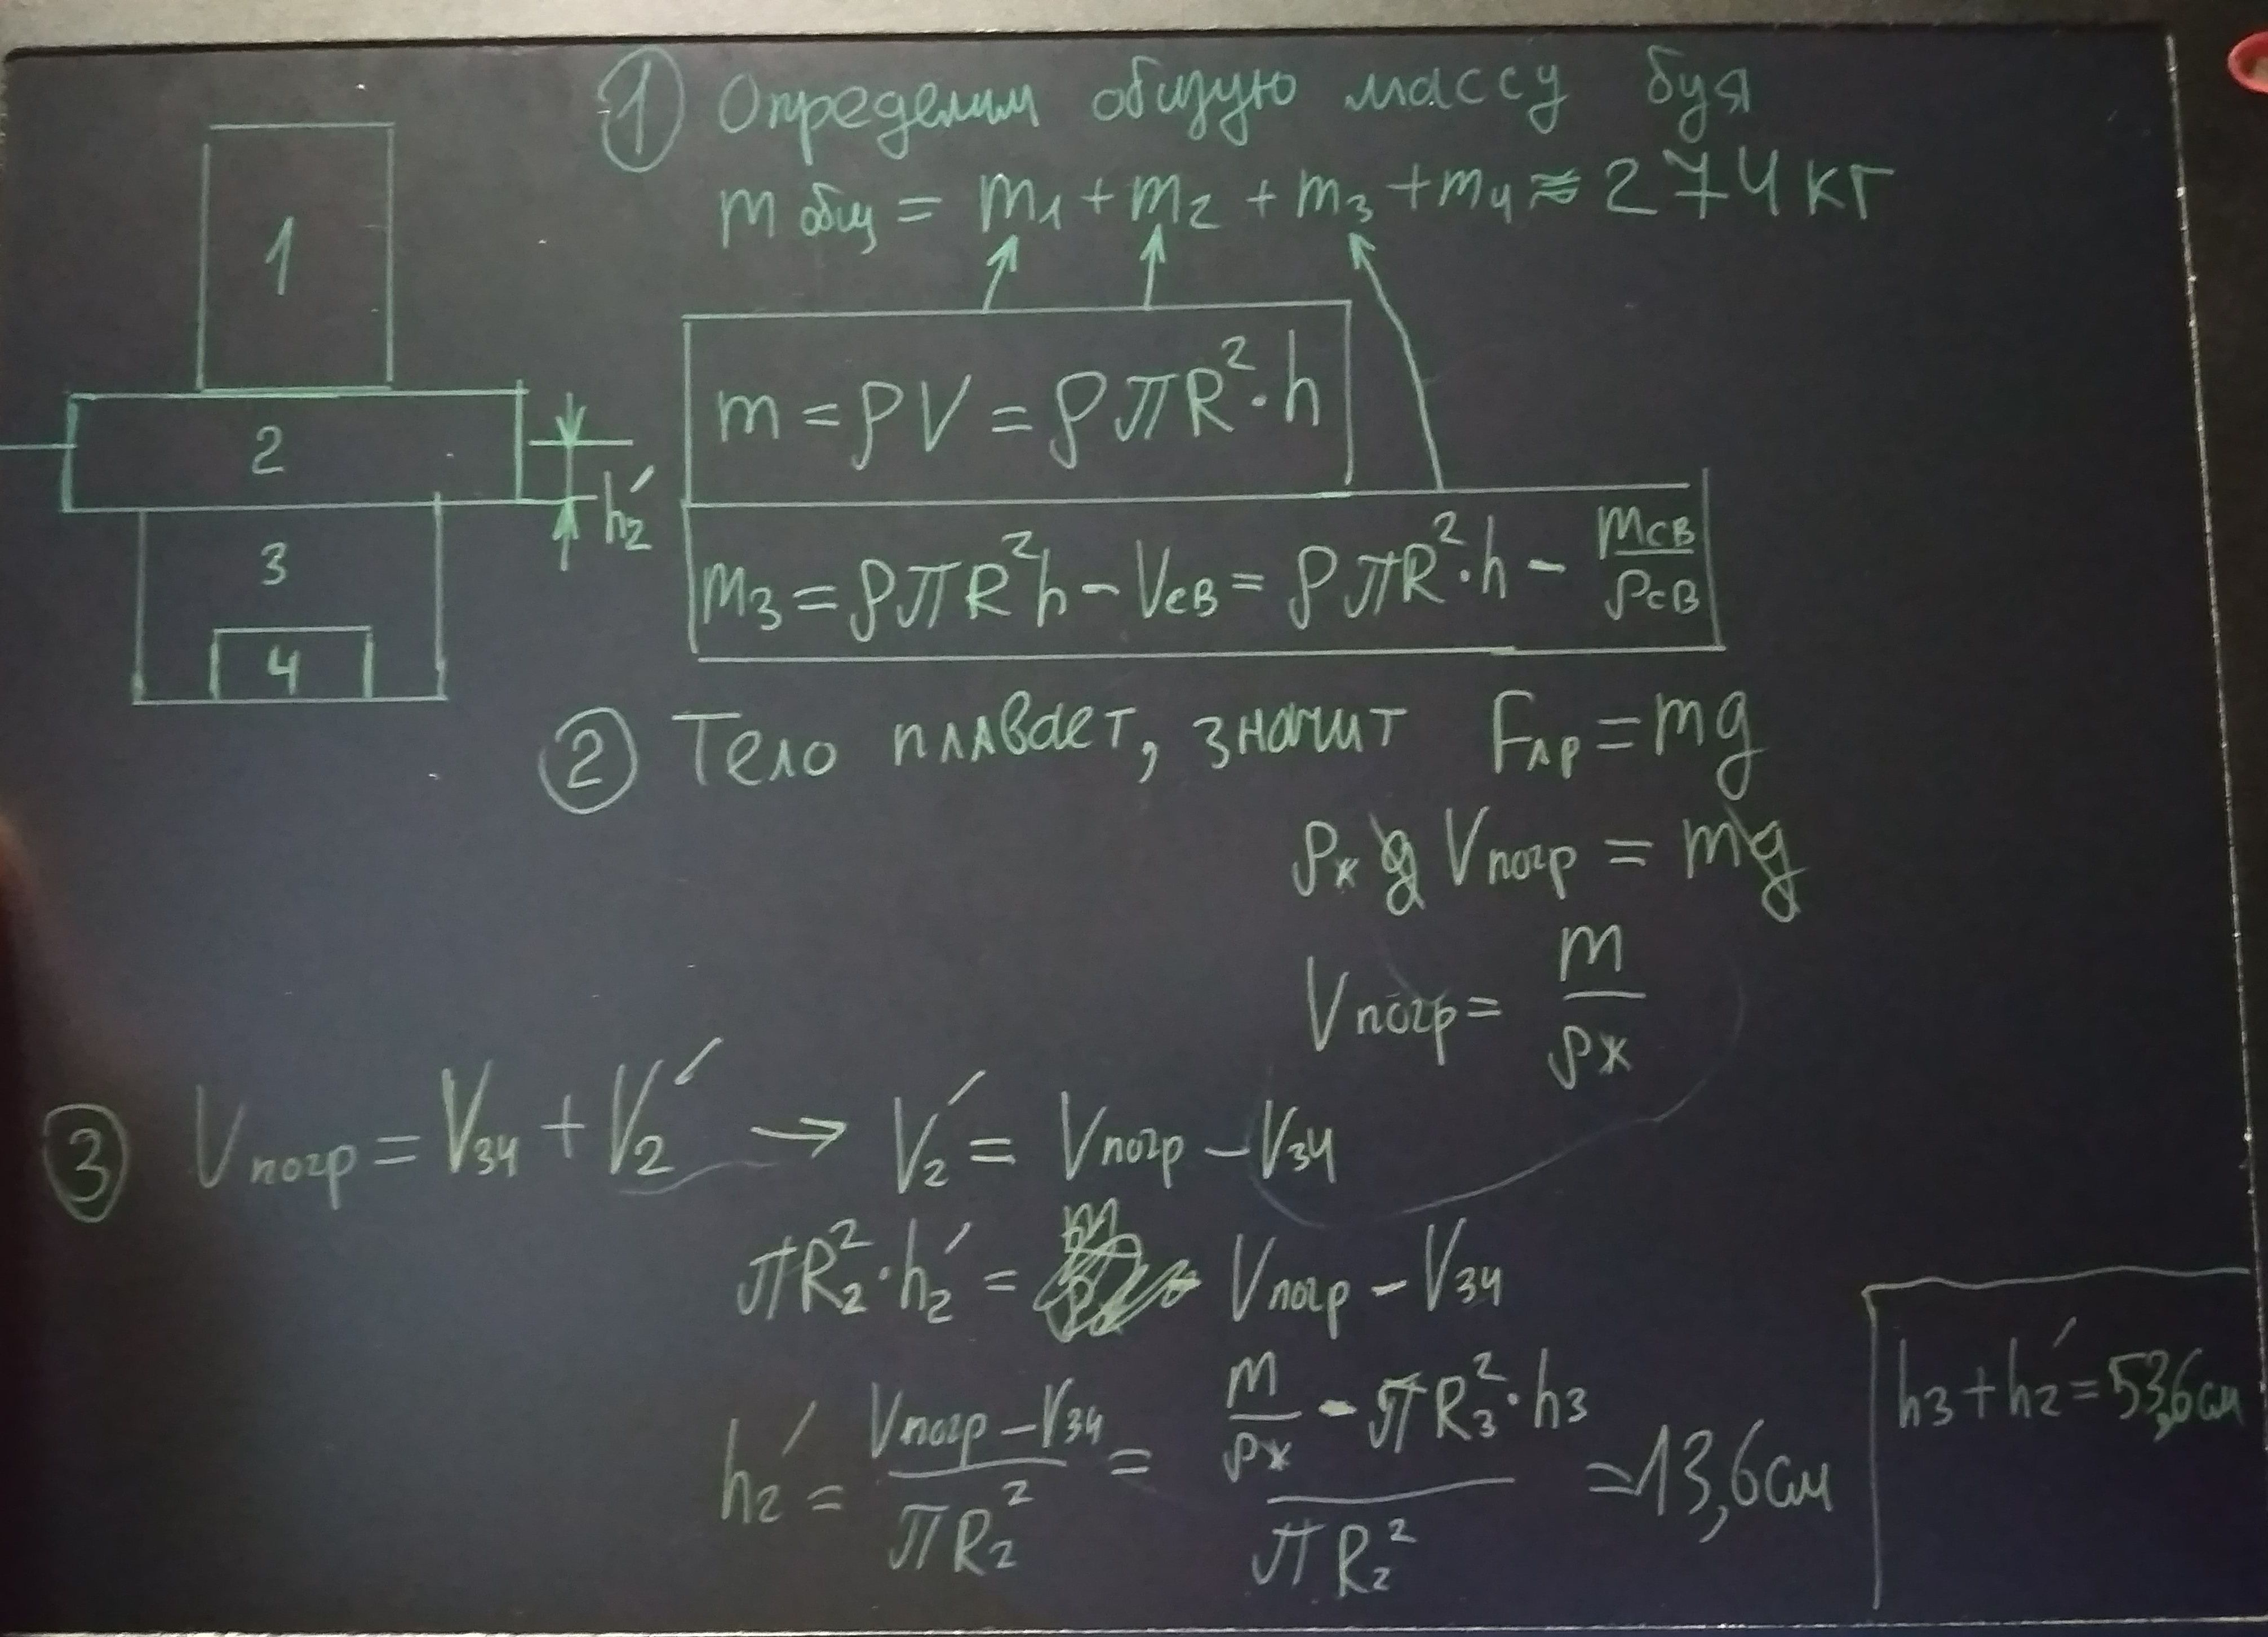 ① Определим общую массу буя
m общ = m₁ + m₂ + m₃ + m₄ ≈ 274 кг
1
2
3
4
h₂′
m = ρV = ρπR²·h
m₃ = ρπR²h - Vсв = ρπR²·h - mсв/ρсв
② Тело плавает, значит Fлр = mg
ρж g Vпогр = mg
Vпогр = m/ρж
③ Vпогр = V₃₄ + V₂′ → V₂′ = Vпогр - V₃₄
πR₂²·h₂′ = Vпогр - V₃₄
h₂′ = (Vпогр - V₃₄)/(πR₂²) = (m/ρж - πR₃²·h₃)/(πR₂²) = 13,6см
h₃ + h₂′ = 53,6см